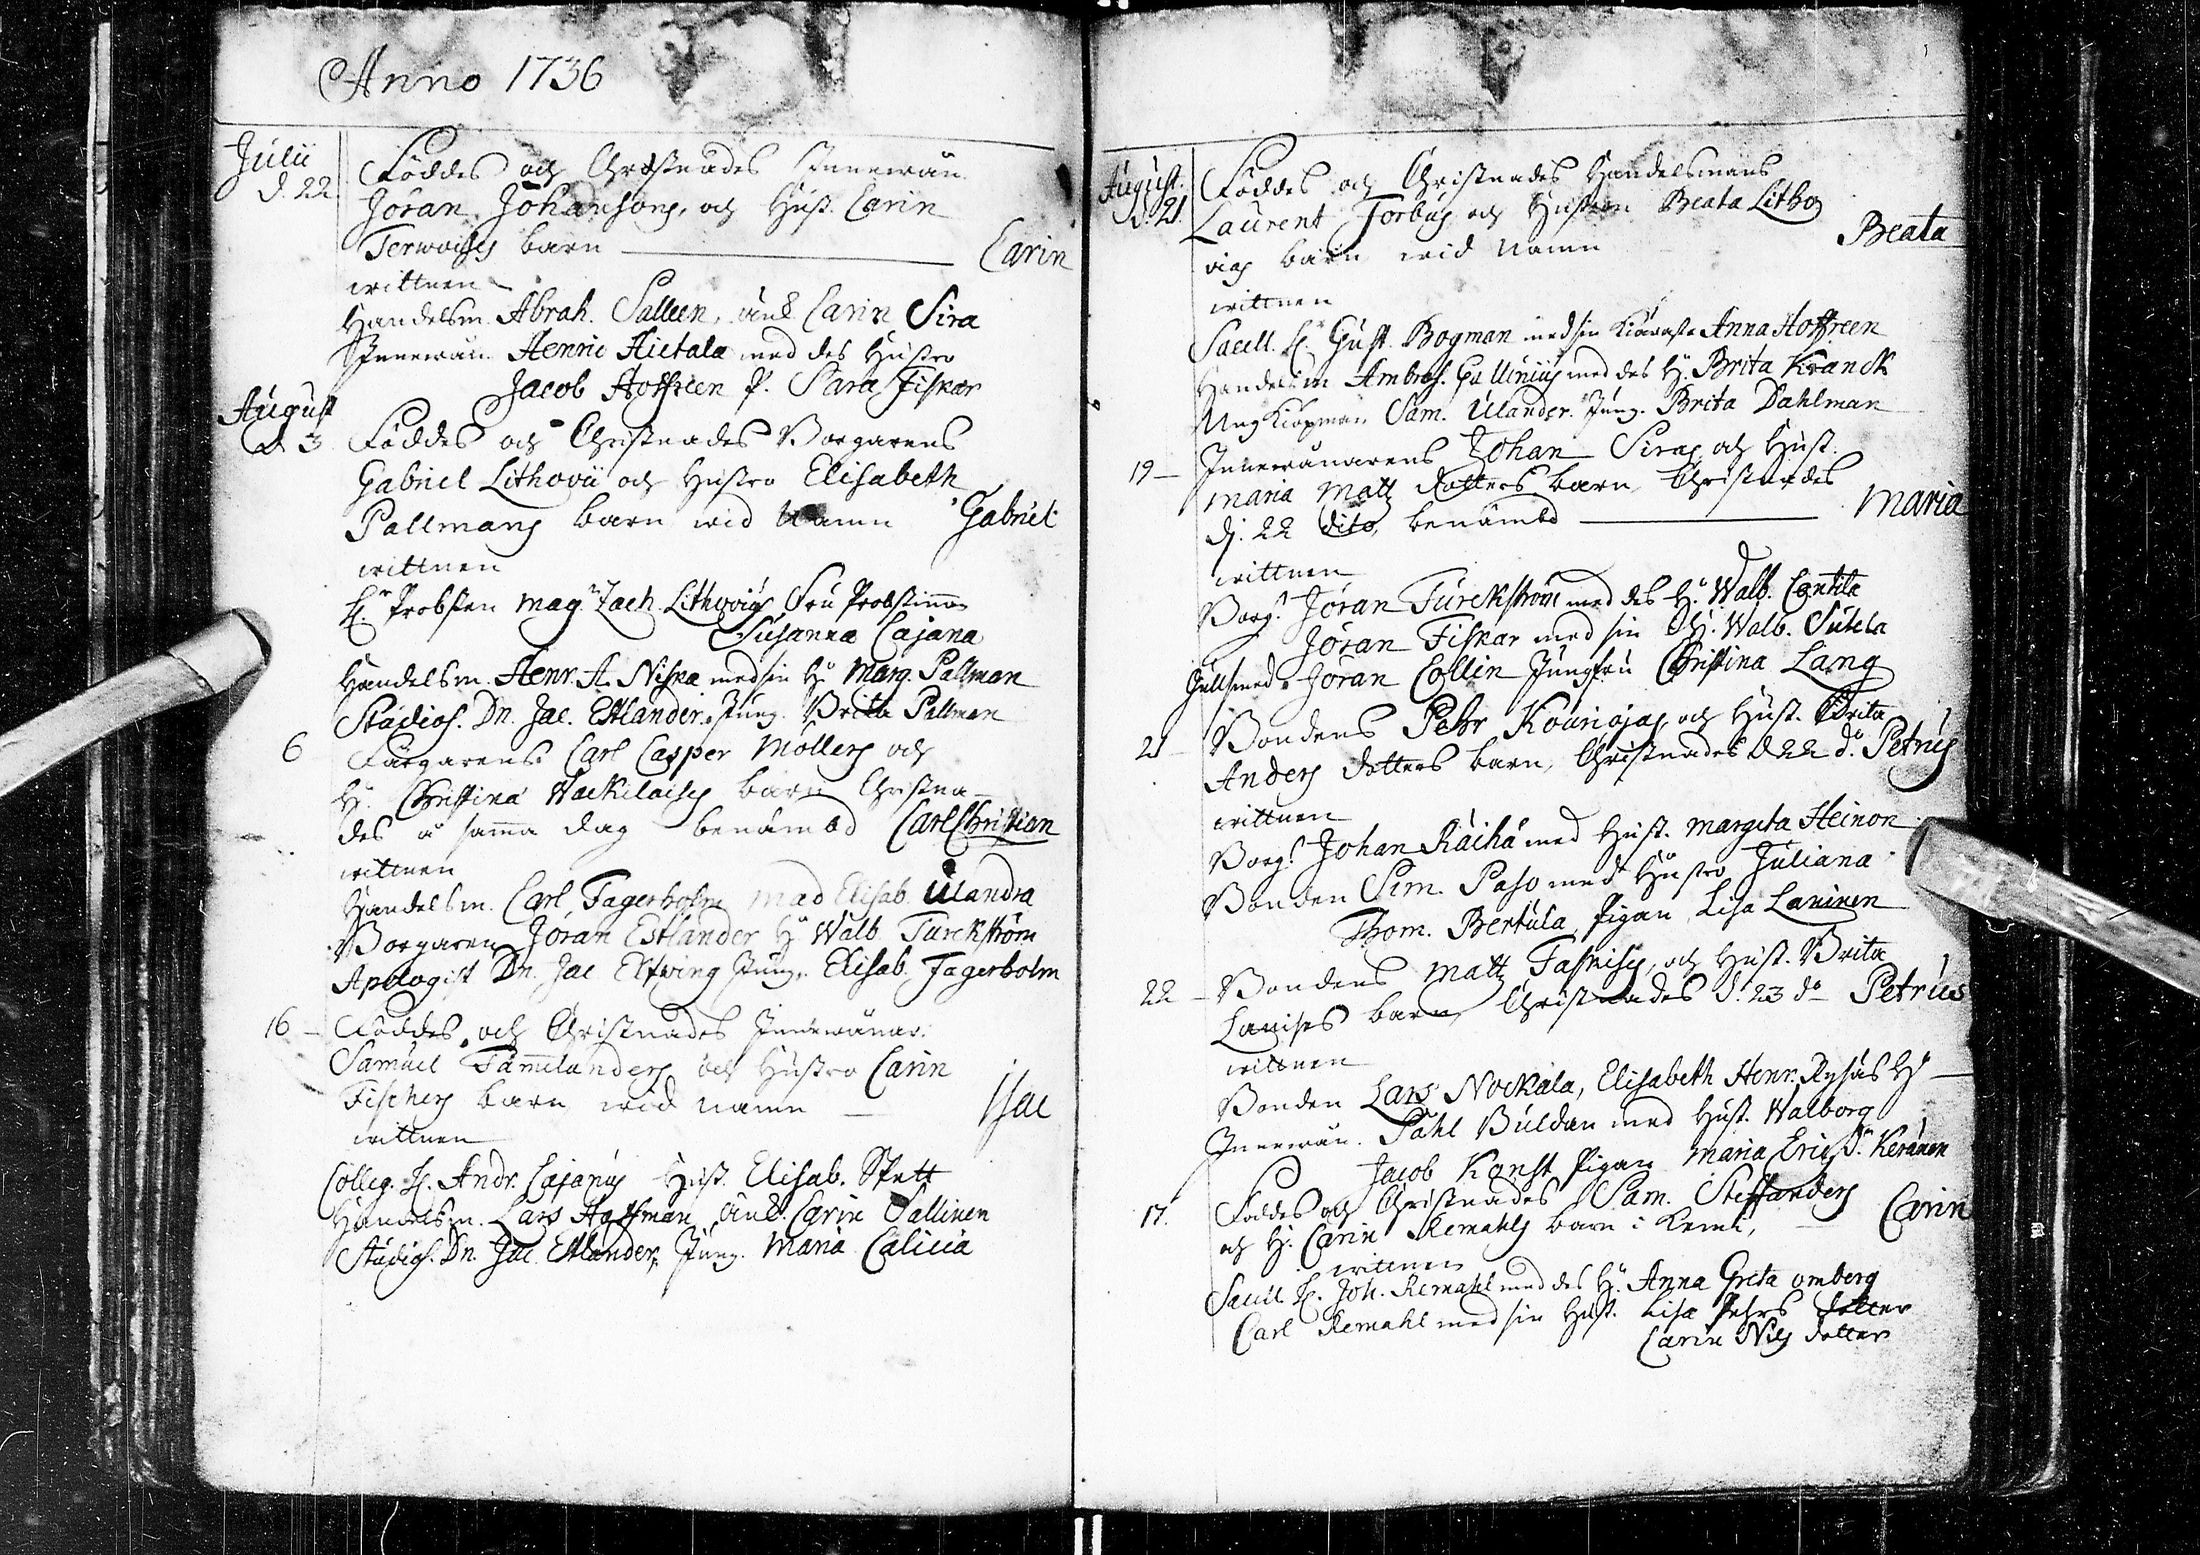 Anno 1736
Julii
d. 22
Föddes och Christnades Innewån.
Jöran Johansons, och Hust. Carin
Terwoises barn Carin
wittnen
Handelsm. Abrah. Salleen, änk Carin Sira
Innewån. Henric Hietala med des Hustro
Jacob Hoffreen P. Sara Fiskar
August
d. 3
Föddes och Christnades Borgarens
Gabriel Lithovii och Hustro Elisabeth
Pallmans barn wid namn Gabriel
wittnen
H. Probsten Mag. Zach. Lithovius Fru Probstinnan
Susanna Cajana
Handelsm. Henr. A. Niska med sin H. Marg. Pallman
Studios. Dn. Jac. Estlander, Jung. Brita Pallman
6 Färgarens Carl Casper Möllers och
H. Christina Wackilaises barn Christna-
des å samma dag benämbd Carl Christian
wittnen
Handelsm. Carl Fagerholm Mad Elisab. Ulandra
Borgaren Jöran Estlander H. Walb. Turckström
Apologist Dn. Jac Elfwing Jung. Elisab. Fagerholm
16 Föddes och Christnades Innewånar.
Samuel Tämlanders och Hustro Carin
Fischers barn wid namn Isac
wittnen
Colleg. H. Andr. Cajanus Hust. Elisab. Stett
Handelsm. Lars Hoffman, änk. Carin Sallinen
Studios. Dn. Jac. Estlander, Jung. Maria Calicia
August.
d. 21
Föddes och Christnades Handelsmans
Laurent Forbus och Hustron Beata Litho
vias barn wid namn Beata
wittnen
Sacell. H. Gust. Bogman med sin Kiäresta Anna Hoffreen
Handelsm Ambros. Gallenius med des H. Brita Kranck
Ung Kiöpman Sam. Ulander. Jung. Brita Dahlman
19 Innewånarens Johan Siras och Hust.
Maria Matts dotters barn, Christnades
d. 22 dito, benämbd Maria
wittnen
Borg. Jöran Turckström med des H. Walb. Contila
Jöran Fiskar med sin H. Walb. Sutela
Gullsmed Jöran Collin Jungfru Christina Lang
21 Bondens Pehr Kouriojas och Hust. Brita
Anders dotters barn, Christnades d 22 do Petrus
wittnen
Borg. Johan Räihä med Hust. Margeta Heinon
Bonden Sim. Paso med Hustro Juliana
Thom. Bertula, Pigan Lisa Laninen
22 Bondens Matts Taskises, och Hust. Brita
Lauises barn, Christnades d. 23 do Petrus
wittnen
Bonden Lars Nockala, Elisabeth Henr. Rysäs H.
Innewån. Påhl Buldan med Hust. Walborg
Jacob Konst Pigan Maria Erics D. Keränen
17. Föddes och Christnades Sam. Steffanders
och H. Carin Remahls barn i Kemi, Carin
wittnen
Sacell. H. Joh. Remahl med des H. Anna Greta omberg
Carl Remahl med sin Hust. Lisa Pehrs dotter
Carin Nils dotter